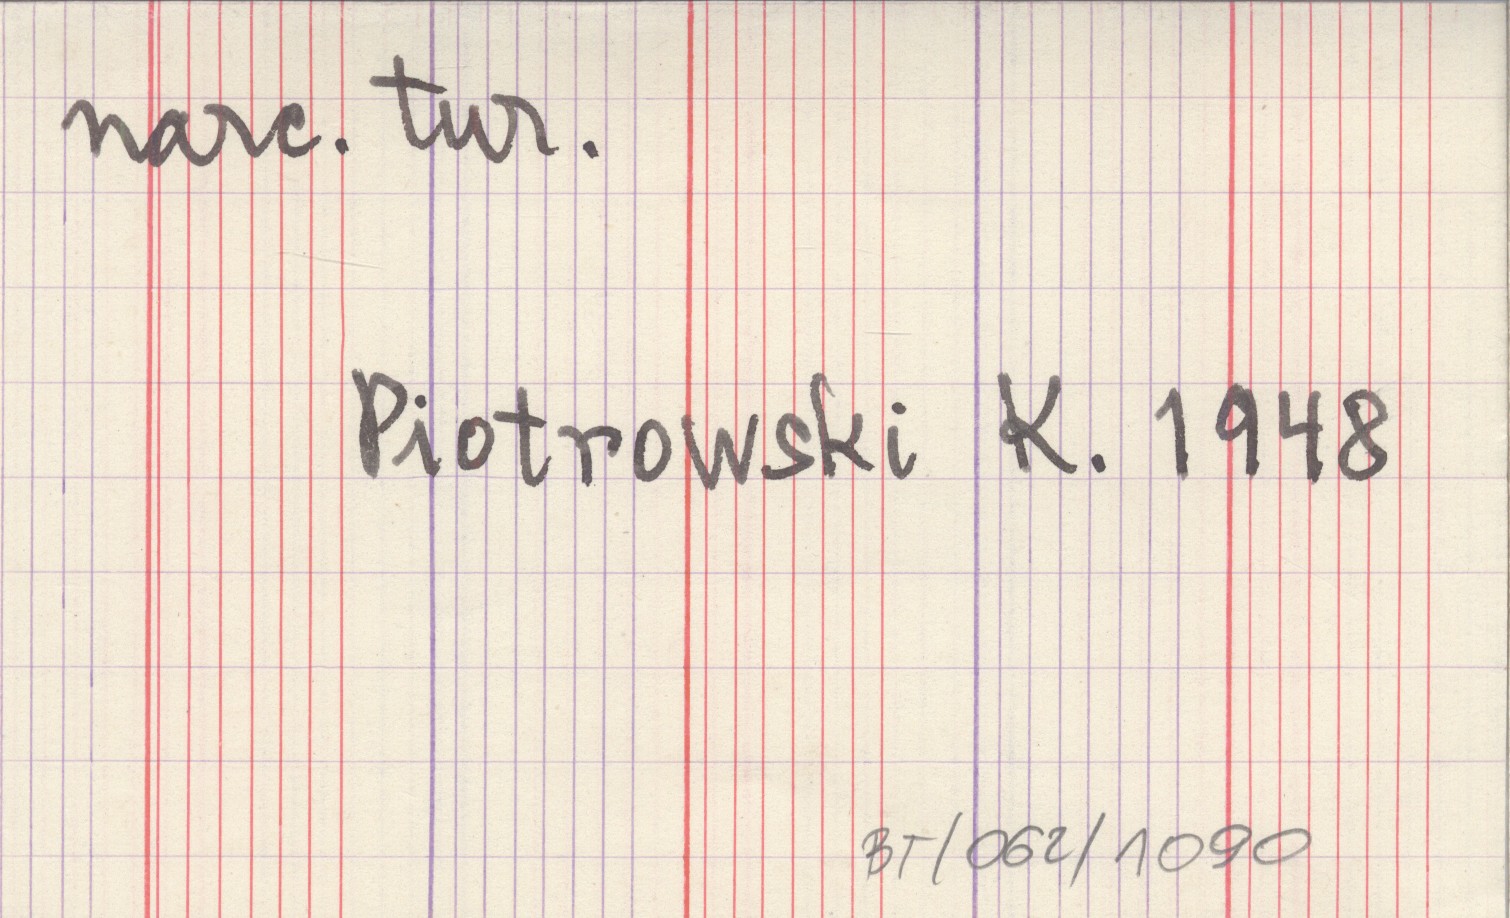 narc. tur.
Piotrowski K. 1948
BT/062/1090